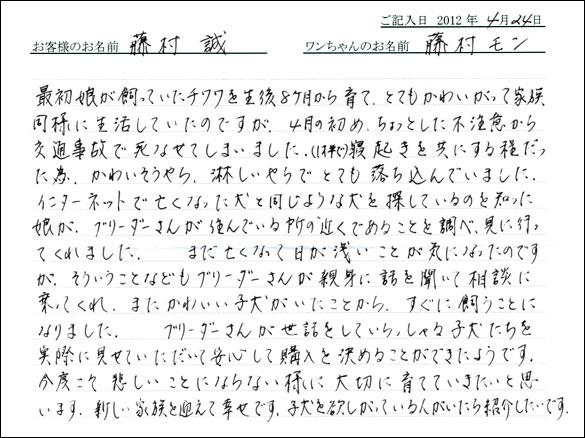 ご記入日 2012年 4月24日
お客様のお名前 藤村 誠 ワンちゃんのお名前 藤村モン
最初娘が飼っていたチワワを生後8ケ月から育て、とてもかわいがって家族
同様に生活していたのですが、4月の初め、ちょっとした不注意から
交通事故で死なせてしまいました。(1才半で)寝起きを共にする程だっ
た為、かわいそうやら、淋しいやらでとても落ち込んでいました。
インターネットで亡くなった犬と同じような犬を探しているのを知った
娘が、ブリーダーさんが住んでいる所の近くであることを調べ、見に行っ
てくれました。 まだ亡くなって日が浅いことが気になったのです
が、そういうことなどもブリーダーさんが親身に話を聞いて相談に
乗ってくれ、またかわいい子犬がいたことから、すぐに飼うことに
なりました。 ブリーダーさんが世話をしていらっしゃる子犬たちを
実際に見せていただいて安心して購入を決めることができたようです。
今度こそ悲しいことにならない様に大切に育てていきたいと思
います。新しい家族を迎えて幸せです。子犬を欲しがっている人がいたら紹介したいです。